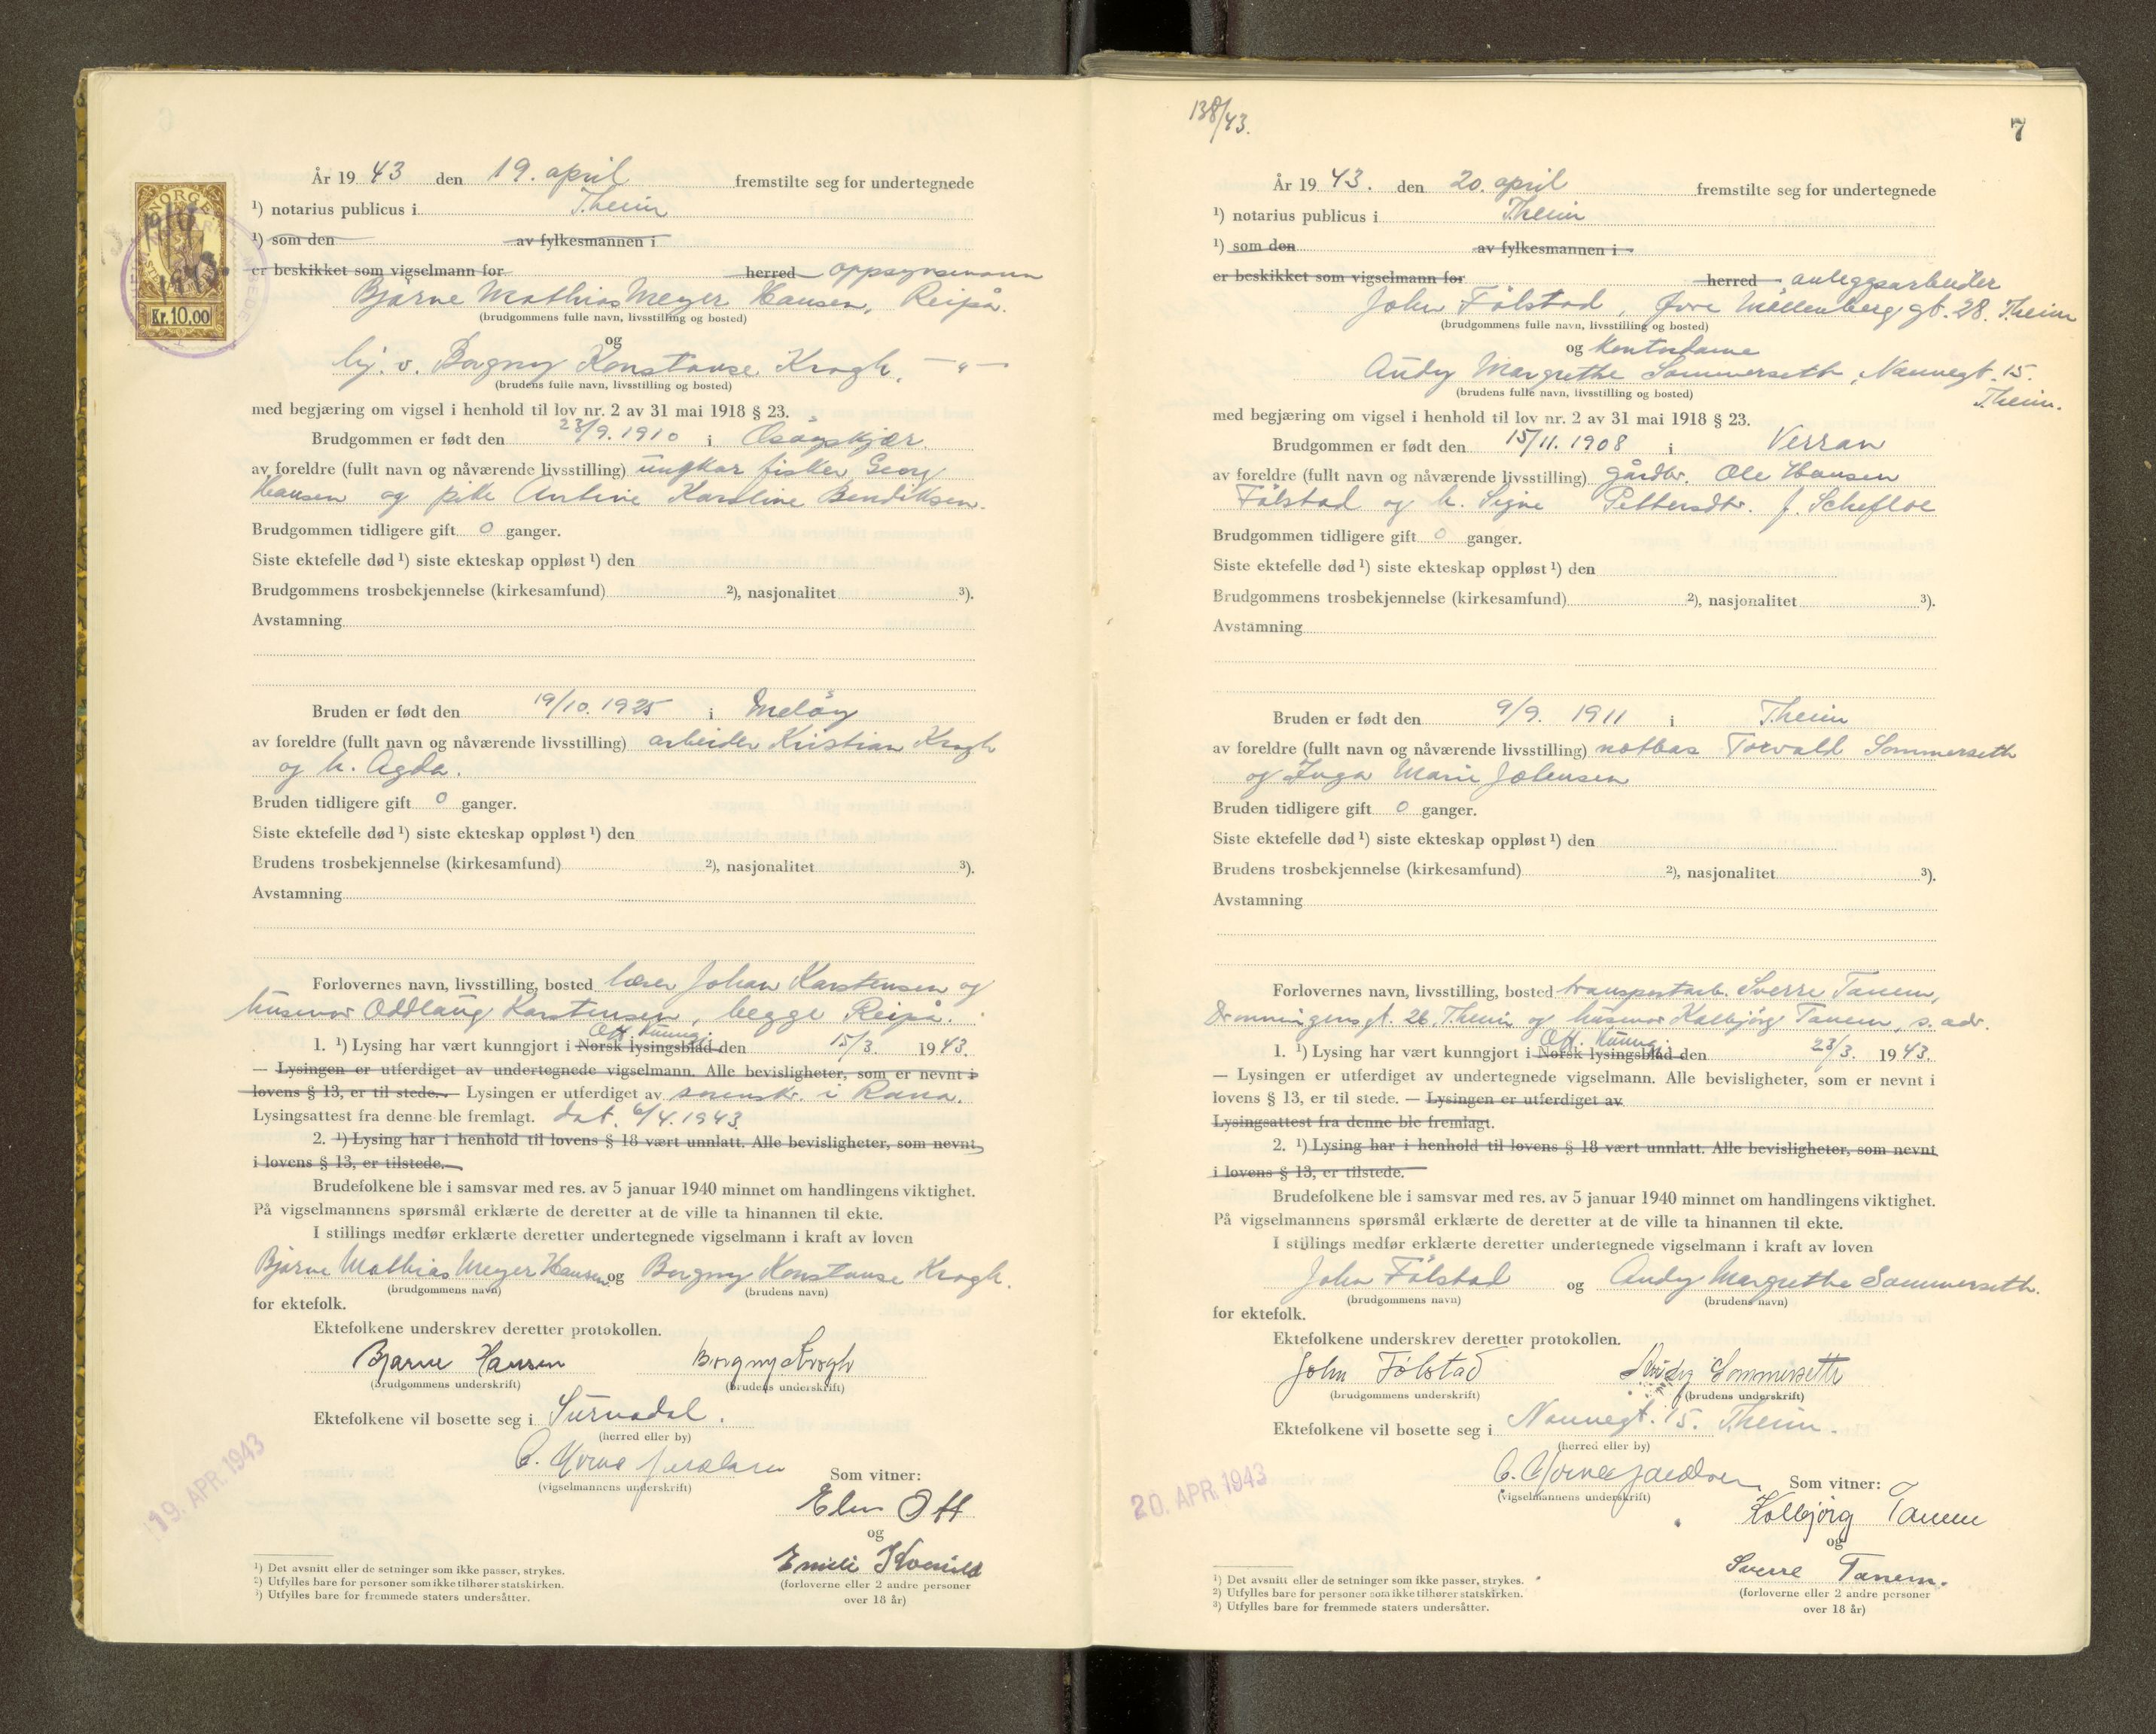 NORGE
19/4
1943.
Kr. 10.00
År 19 43 den 19. april fremstilte seg for undertegnede
¹) notarius publicus i Theim
¹) som den av fylkesmannen i
er beskikket som vigselmann for herred oppsynsmann
Bjarne Mathias Meyer Hansen, Reipå.
(brudgommens fulle navn, livsstilling og bosted)
og
hj. v. Borgny Konstanse Krogh, — " —
(brudens fulle navn, livsstilling og bosted)
med begjæring om vigsel i henhold til lov nr. 2 av 31 mai 1918 § 23.
Brudgommen er født den 23/9. 1910 i
av foreldre (fullt navn og nåværende livsstilling) ungkar fisker Georg
Hansen og pike Antine Karoline Bendiksen.
Brudgommen tidligere gift 0 ganger.
Siste ektefelle død ¹) siste ekteskap oppløst ¹) den
Brudgommens trosbekjennelse (kirkesamfund) ²), nasjonalitet ³).
Avstamning
Bruden er født den 19/10. 1925 i Meløy
av foreldre (fullt navn og nåværende livsstilling) arbeider Kristian Krogh
og h. Agda.
Bruden tidligere gift 0 ganger.
Siste ektefelle død ¹) siste ekteskap oppløst ¹) den
Brudens trosbekjennelse (kirkesamfund) ²), nasjonalitet ³).
Avstamning
Forlovernes navn, livsstilling, bosted lærer Johan Karstensen og
husmor Oddlaug Karstensen, begge Reipå.
Off. kunng.
1. ¹) Lysing har vært kunngjort i Norsk lysingsblad den 15/3. 1943.
— Lysingen er utferdiget av undertegnede vigselmann. Alle bevisligheter, som er nevnt i
lovens § 13, er til stede. — Lysingen er utferdiget av sorenskr. i Rana.
Lysingsattest fra denne ble fremlagt. dat. 6/4. 1943
2. ¹) Lysing har i henhold til lovens § 18 vært unnlatt. Alle bevisligheter, som nevnt
i lovens § 13, er tilstede.
Brudefolkene ble i samsvar med res. av 5 januar 1940 minnet om handlingens viktighet.
På vigselmannens spørsmål erklærte de deretter at de ville ta hinannen til ekte.
I stillings medfør erklærte deretter undertegnede vigselmann i kraft av loven
Bjarne Mathias Meyer Hansen og Borgny Konstanse Krogh.
(brudgommens navn) (brudens navn)
for ektefolk.
Ektefolkene underskrev deretter protokollen.
Bjarne Hansen Borgny Krogh
(brudgommens underskrift) (brudens underskrift)
Ektefolkene vil bosette seg i Surnadal.
(herred eller by)
(vigselmannens underskrift)
Som vitner:
Elen Ott
og
Emili
(forloverne eller 2 andre personer
over 18 år)
19. APR. 1943
¹) Det avsnitt eller de setninger som ikke passer, strykes.
²) Utfylles bare for personer som ikke tilhører statskirken.
³) Utfylles bare for fremmede staters undersåtter.
138/43.
7
År 19 43. den 20. april fremstilte seg for undertegnede
¹) notarius publicus i Theim
¹) som den av fylkesmannen i
er beskikket som vigselmann for herred anleggsarbeider
John Følstad, Øvre Møllenberg gt. 28. Theim
(brudgommens fulle navn, livsstilling og bosted)
og kontordame
Andy Margrethe Sommerseth, Nannegt. 15.
Theim.
(brudens fulle navn, livsstilling og bosted)
med begjæring om vigsel i henhold til lov nr. 2 av 31 mai 1918 § 23.
Brudgommen er født den 15/11. 1908 i Verran
av foreldre (fullt navn og nåværende livsstilling) gårdbr. Ole Hansen
Følstad og h. Signe Pettersdtr. f. Schefloe
Brudgommen tidligere gift 0 ganger.
Siste ektefelle død ¹) siste ekteskap oppløst ¹) den
Brudgommens trosbekjennelse (kirkesamfund) ²), nasjonalitet ³).
Avstamning
Bruden er født den 9/9. 1911 i Theim
av foreldre (fullt navn og nåværende livsstilling) notbas Torvald Sommerseth
og Inga Marie Johensen
Bruden tidligere gift 0 ganger.
Siste ektefelle død ¹) siste ekteskap oppløst ¹) den
Brudens trosbekjennelse (kirkesamfund) ²), nasjonalitet ³).
Avstamning
Forlovernes navn, livsstilling, bosted transportarb. Sverre Tanem,
Dronningensgt. 26. Theim og husmor Kolbjørg Tanem, s. adr.
Off. kunng.
1. ¹) Lysing har vært kunngjort i Norsk lysingsblad den 23/3. 1943.
— Lysingen er utferdiget av undertegnede vigselmann. Alle bevisligheter, som er nevnt i
lovens § 13, er til stede. — Lysingen er utferdiget av
Lysingsattest fra denne ble fremlagt.
2. ¹) Lysing har i henhold til lovens § 18 vært unnlatt. Alle bevisligheter, som nevnt
i lovens § 13, er tilstede.
Brudefolkene ble i samsvar med res. av 5 januar 1940 minnet om handlingens viktighet.
På vigselmannens spørsmål erklærte de deretter at de ville ta hinannen til ekte.
I stillings medfør erklærte deretter undertegnede vigselmann i kraft av loven
John Følstad og Andy Margrethe Sommerseth.
(brudgommens navn) (brudens navn)
for ektefolk.
Ektefolkene underskrev deretter protokollen.
John Følstad Andy Sommerseth
(brudgommens underskrift) (brudens underskrift)
Ektefolkene vil bosette seg i Nannegt. 15. Theim.
(herred eller by)
(vigselmannens underskrift)
Som vitner:
Kolbjörg Tanem
og
Sverre Tanem.
(forloverne eller 2 andre personer
over 18 år)
20. APR. 1943
¹) Det avsnitt eller de setninger som ikke passer, strykes.
²) Utfylles bare for personer som ikke tilhører statskirken.
³) Utfylles bare for fremmede staters undersåtter.